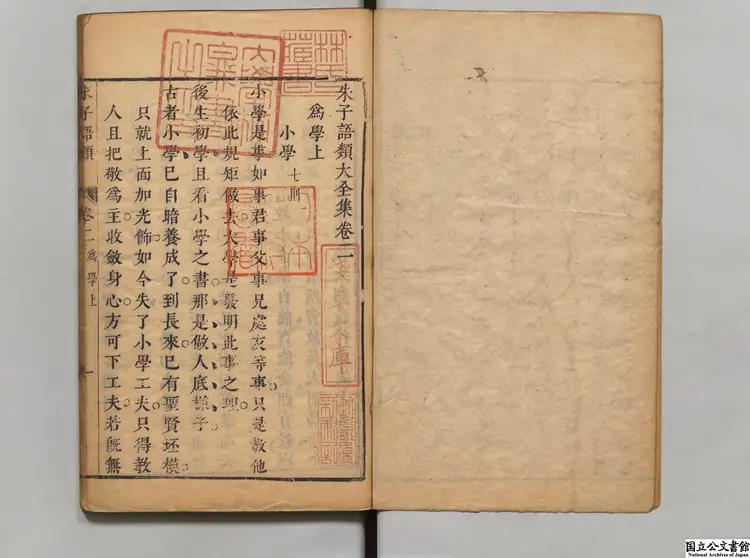 朱子語類大全集卷二
為學上
小學 七則
小學是事如事君事父事兄處友等事只是教他
依此規矩做去大學是發明此事之理
後生初學且看小學之書那是做人底樣子
古者小學已自暗養成了到長來已有聖賢坯模
只就上面加光飾如今失了小學工夫只得教
人且把敬為主收斂身心方可下工夫若旣無
朱子語類 卷二 為學上 一
国立公文書館
National Archives of Japan